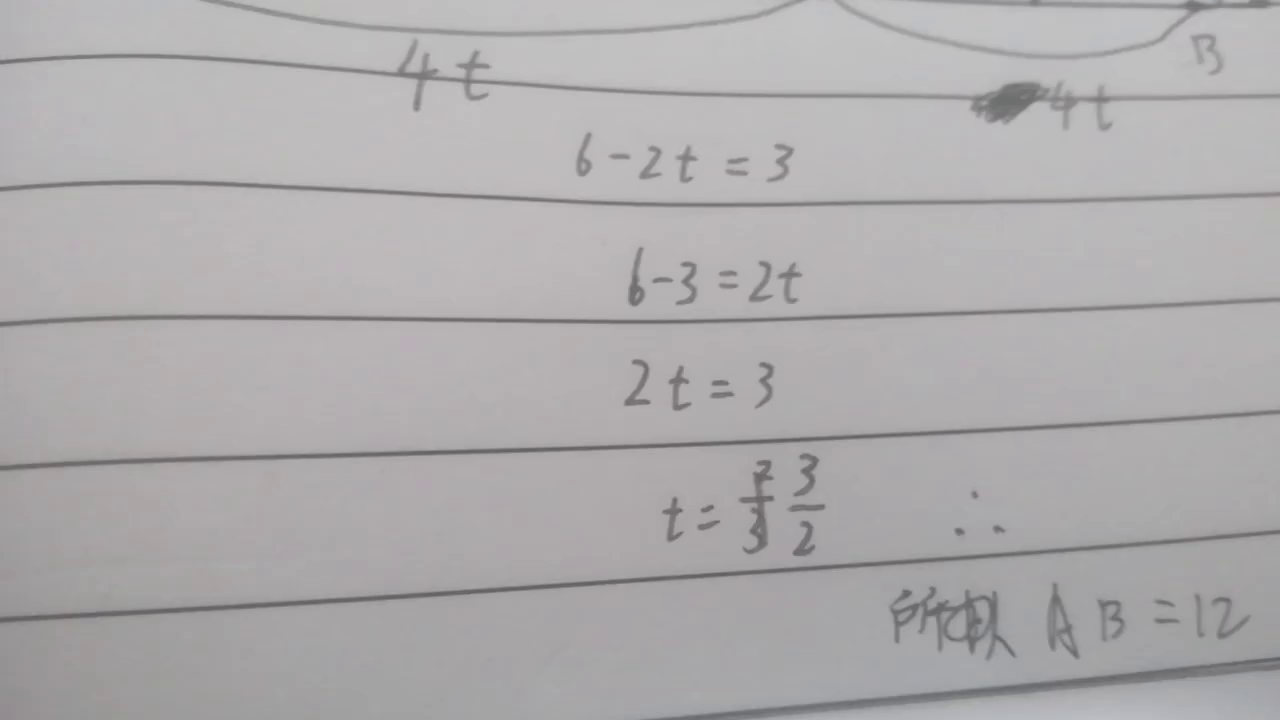 B
4t 4t
6-2t=3
6-3=2t
2t=3
t=3/2 ∴
所以 AB=12